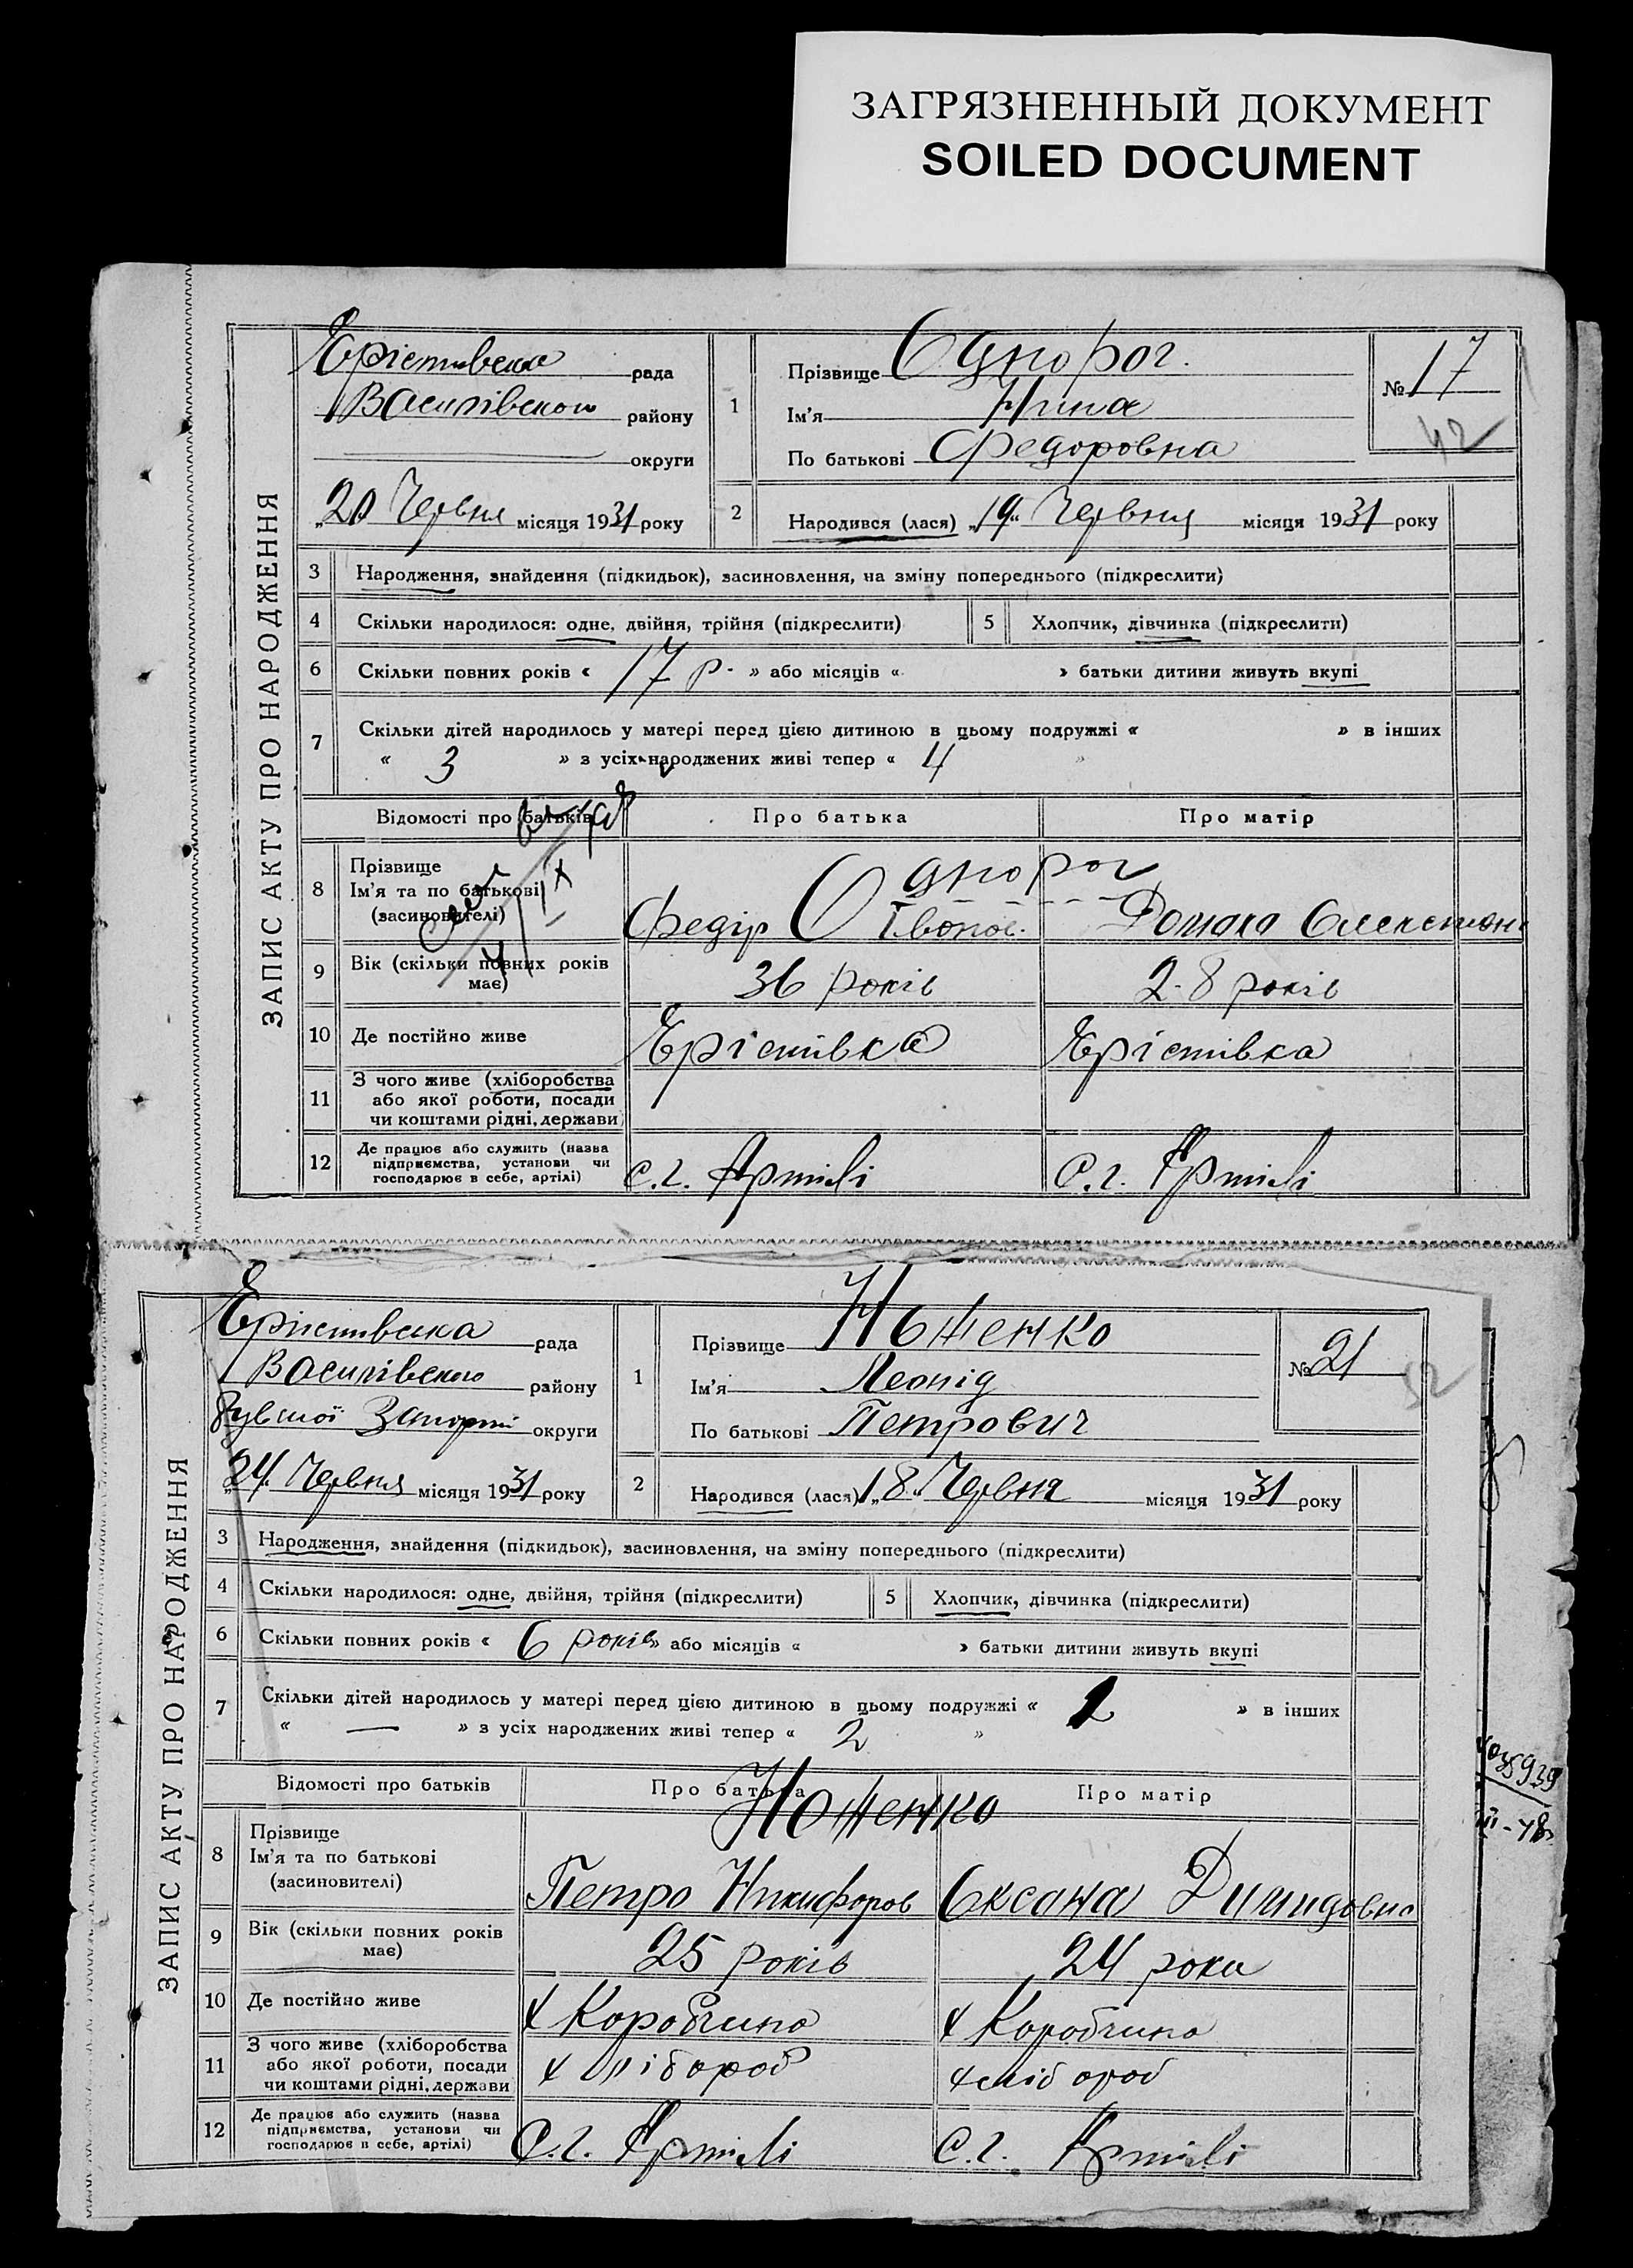 ЗАГРЯЗНЕННЫЙ ДОКУМЕНТ
SOILED DOCUMENT
ЗАПИС АКТУ ПРО НАРОДЖЕННЯ
Єрістивська рада
Василівского району
округи
„20 Червня місяця 1931 року
1
Прізвище Однорог.
Ім'я Нина
По батькові Федоровна
№ 17
42
2
Народився (лася) „19“ Червня місяця 1931 року
3 Народження, знайдення (підкидьок), засиновлення, на зміну попереднього (підкреслити)
4 Скільки народилося: одне, двійня, трійня (підкреслити) 5 Хлопчик, дівчинка (підкреслити)
6 Скільки повних років « 17 р. » або місяців « » батьки дитини живуть вкупі
7 Скільки дітей народилось у матері перед цією дитиною в цьому подружжі « » в інших
« 3 » з усіх народжених живі тепер « 4 »
Відомості про батьків Про батька Про матір
8 Прізвище
Ім'я та по батькові
(засиновителі)
Однорог
Федір
9 Вік (скільки повних років
має)
36 років 28 років
10 Де постійно живе Єрістівка Єрістівка
11 З чого живе (хліборобства
або якої роботи, посади
чи коштами рідні, держави
12 Де працює або служить (назва
підприємства, установи чи
господарює в себе, артілі)
С.г. Артілі С.г. Артілі
ЗАПИС АКТУ ПРО НАРОДЖЕННЯ
Єристивська рада
Василівского району
бувшої округи
„24“ Червня місяця 1931 року
1
Прізвище Ноженко
Ім'я Леонід
По батькові Петрович
№ 21
2
Народився (лася) „18“ Червня місяця 1931 року
3 Народження, знайдення (підкидьок), засиновлення, на зміну попереднього (підкреслити)
4 Скільки народилося: одне, двійня, трійня (підкреслити) 5 Хлопчик, дівчинка (підкреслити)
6 Скільки повних років « 6 років » або місяців « » батьки дитини живуть вкупі
7 Скільки дітей народилось у матері перед цією дитиною в цьому подружжі « » в інших
« — » з усіх народжених живі тепер « 2 »
Відомості про батьків Про батька Про матір
Ноженко
8 Прізвище
Ім'я та по батькові
(засиновителі)
Петро Никифоров Оксана
9 Вік (скільки повних років
має)
25 років 24 роки
10 Де постійно живе х Коробчино х Коробчино
11 З чого живе (хліборобства
або якої роботи, посади
чи коштами рідні, держави
хлібороб хлібороб
12 Де працює або служить (назва
підприємства, установи чи
господарює в себе, артілі)
С.г. Артілі С.г. Артілі